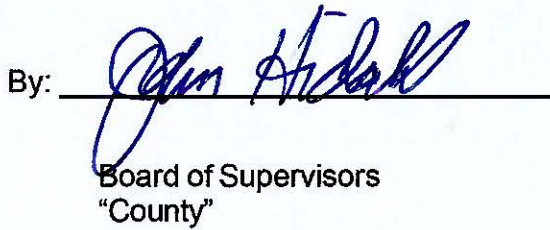 By: John Hidahl
Board of Supervisors
"County"